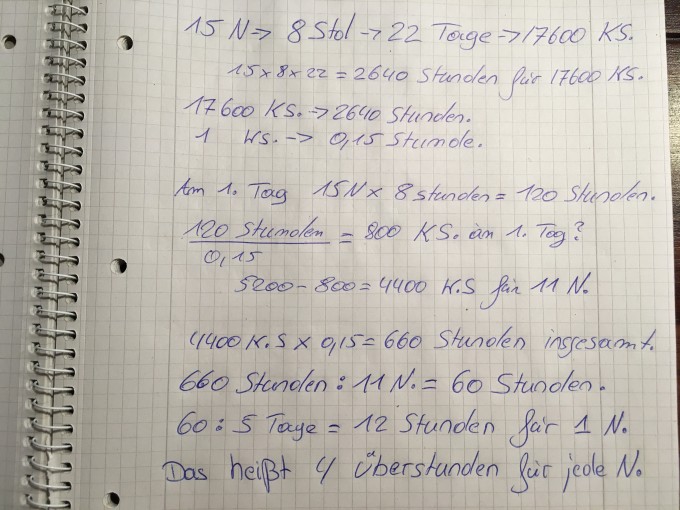 15 N → 8 Std → 22 Tage → 17600 KS.
15 x 8 x 22 = 2640 Stunden für 17600 KS.
17600 KS. → 2640 Stunden.
1 KS. → 0,15 Stunde.
Am 1. Tag 15 N x 8 Stunden = 120 Stunden.
120 Stunden / 0,15 = 800 KS. an 1. Tag?
5200 - 800 = 4400 K.S für 11 N.
4400 K.S x 0,15 = 660 Stunden insgesamt.
660 Stunden : 11 N. = 60 Stunden.
60 : 5 Tage = 12 Stunden für 1 N.
Das heißt 4 Überstunden für jede N.